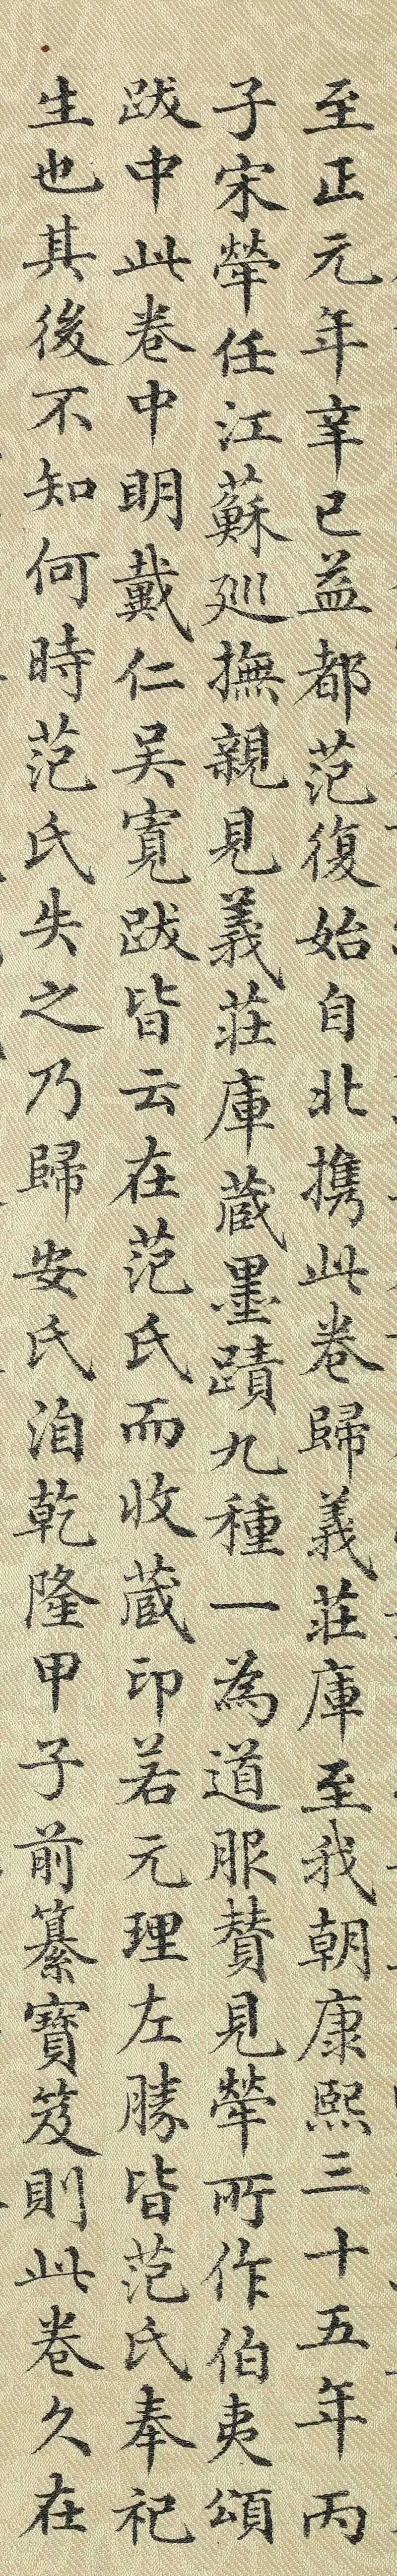 至正元年辛巳益都范復始自北携此卷歸義莊庫至我朝康熙三十五年丙
子宋犖任江蘇廵撫親見義莊庫蔵墨蹟九種一為道服賛見犖所作伯夷頌
跋中此卷中明戴仁吴寛跋皆云在范氏而收蔵印若元理左勝皆范氏奉祀
生也其後不知何時范氏失之乃歸安氏洎乾隆甲子前纂寳笈則此卷久在